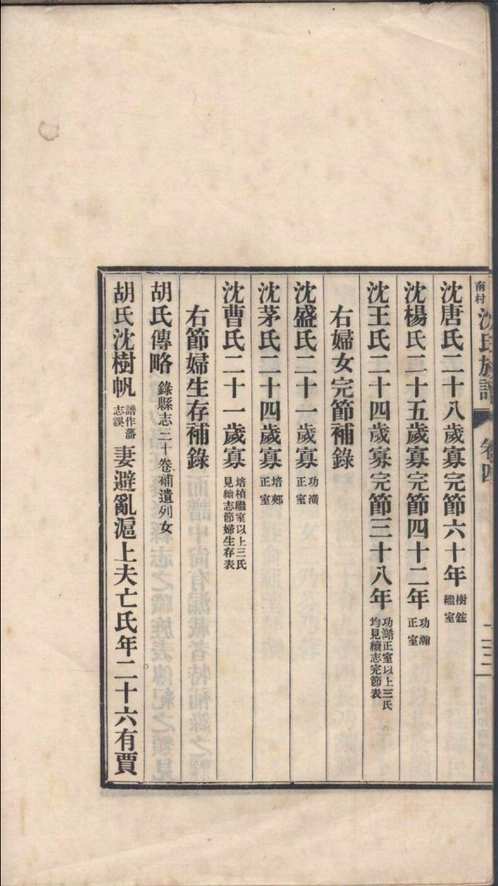 南村沈氏族譜 卷四
沈唐氏二十八歲寡完節六十年樹鋐繼室
沈楊氏二十五歲寡完節四十二年功瀚正室
沈王氏二十四歲寡完節三十八年功澔正室以上三氏均見續志完節表
右婦女完節補錄
沈盛氏二十一歲寡功正室
沈茅氏二十四歲寡培郟正室
沈曹氏二十一歲寡培楨繼室以上三氏見續志節婦生存表
右節婦生存補錄
胡氏傳略錄縣志三十卷補遺列女
胡氏沈樹帆譜作藩志誤妻避亂滬上夫亡氏年二十六有賈